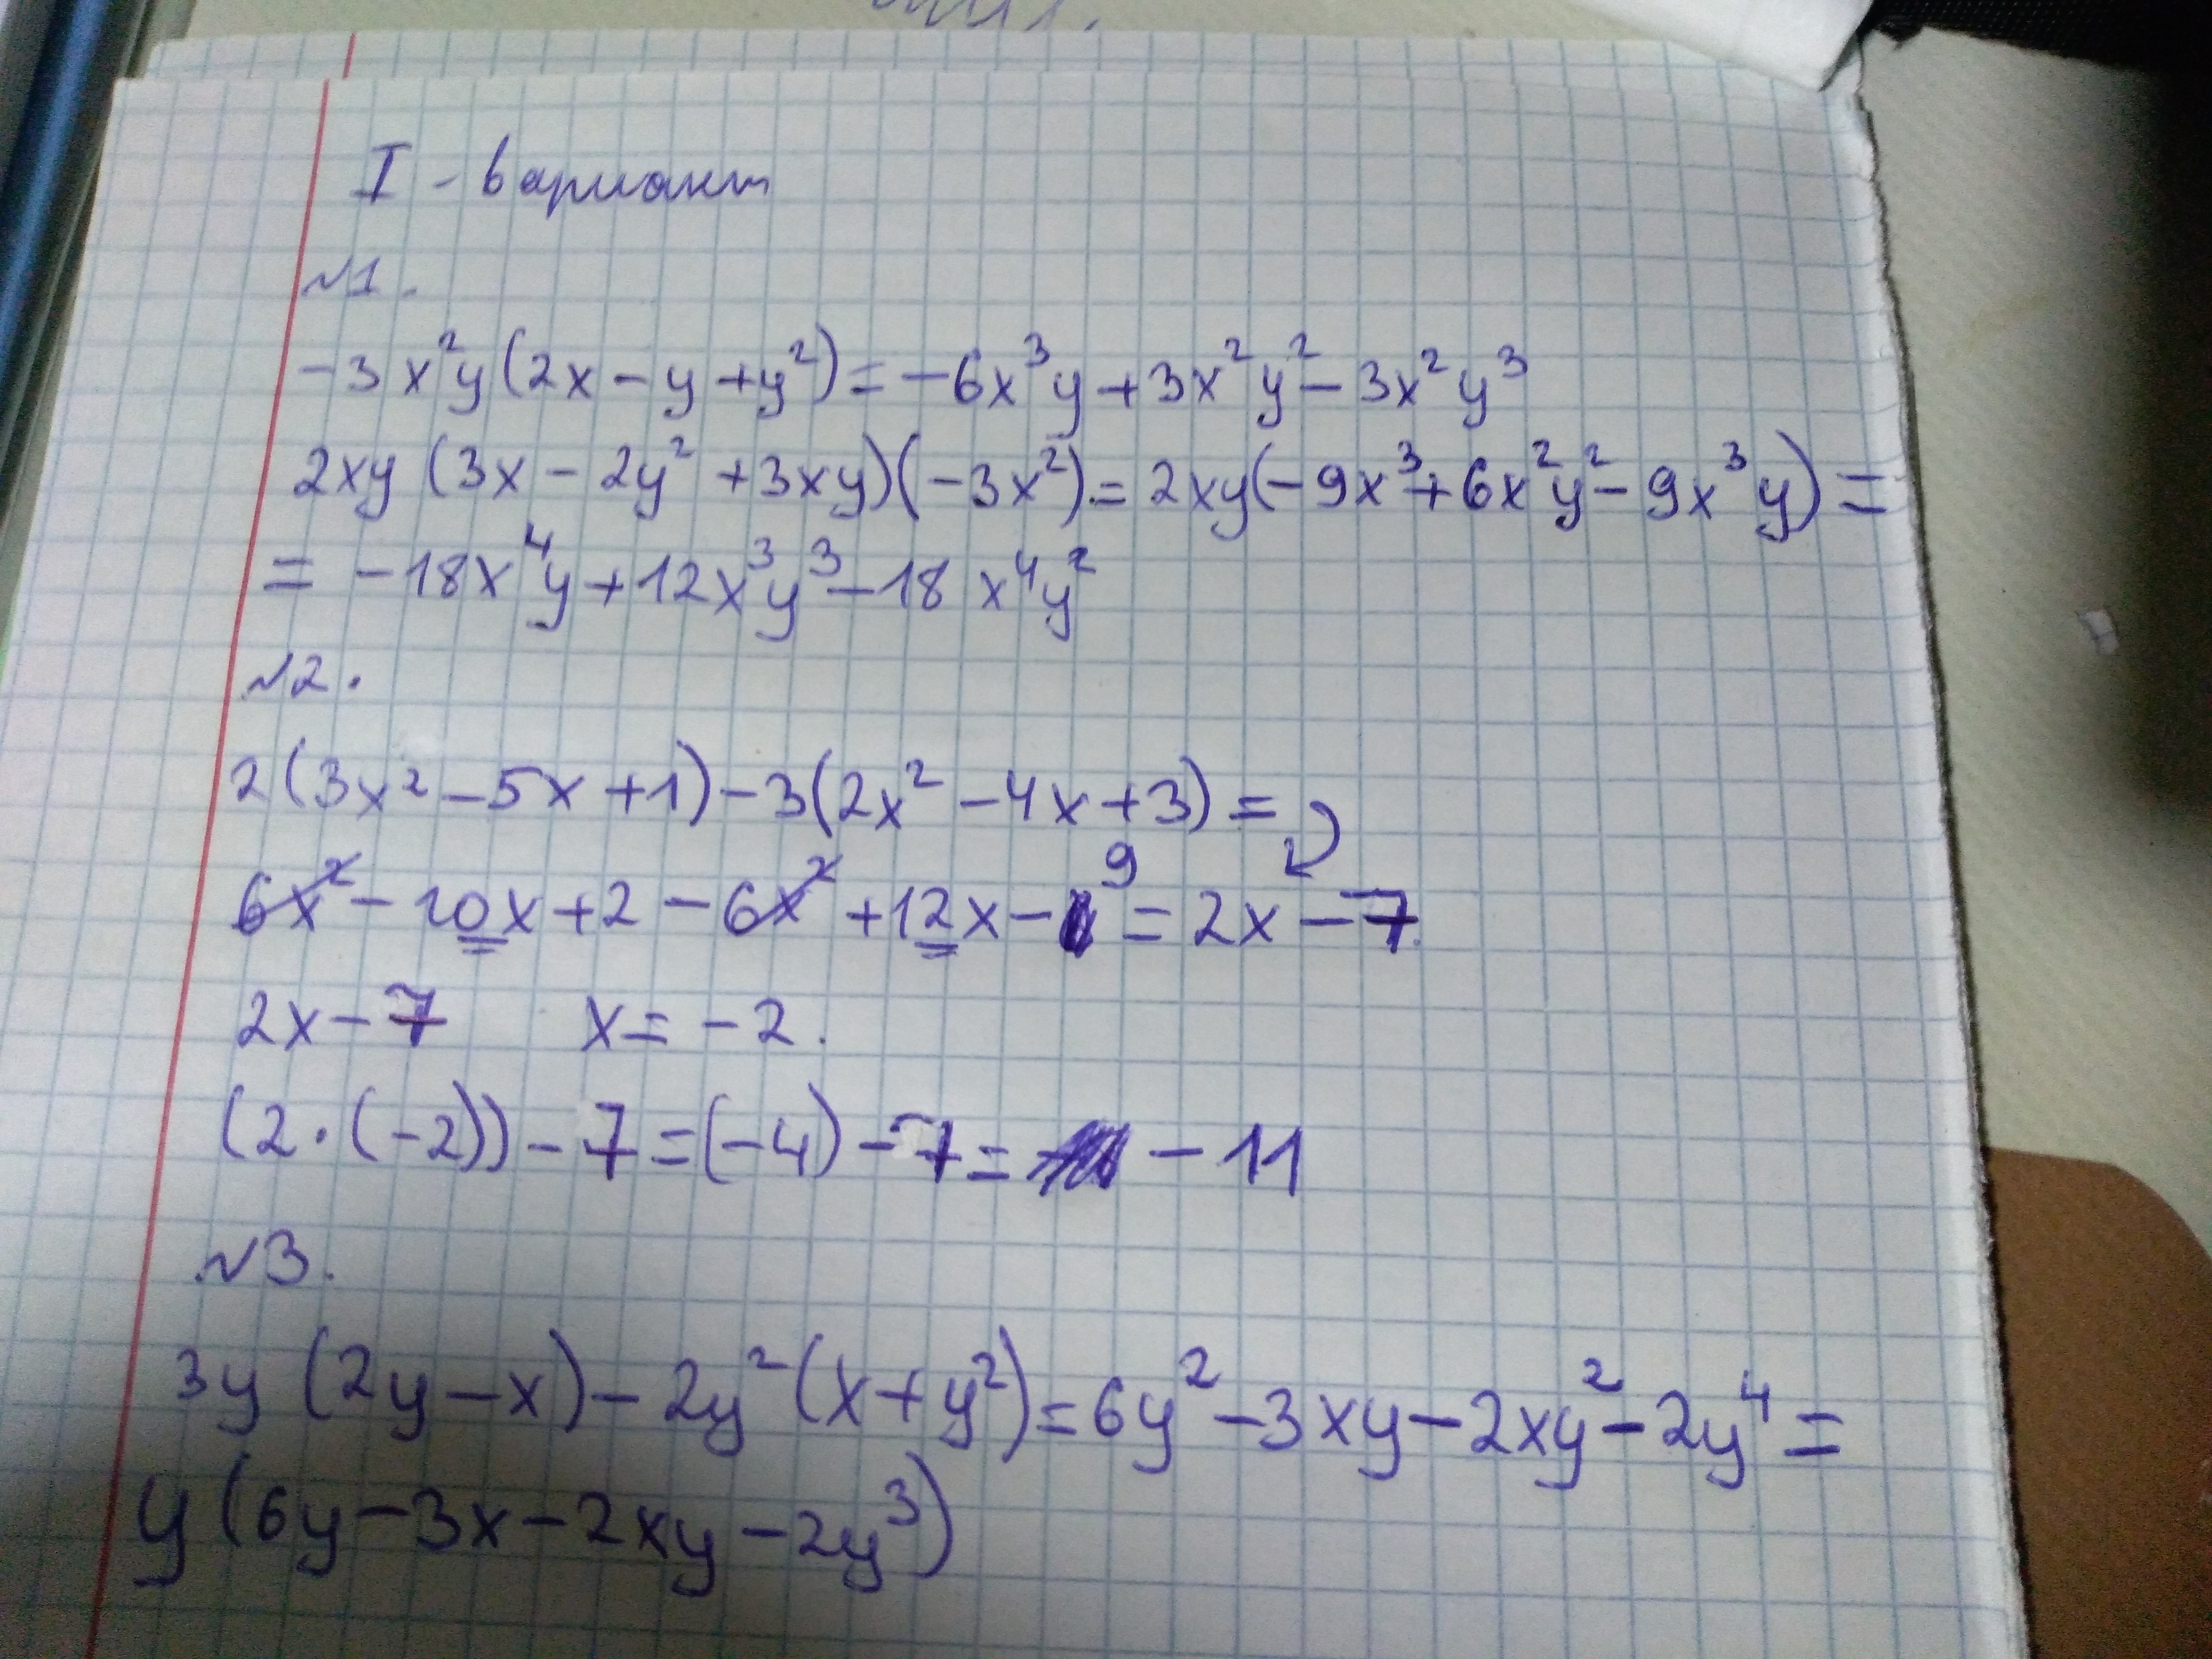 I - вариант
№1.
-3x²y(2x - y + y²) = -6x³y + 3x²y² - 3x²y³
2xy (3x - 2y² + 3xy)(-3x²) = 2xy(-9x³ + 6x²y² - 9x³y) =
= -18x⁴y + 12x³y³ - 18 x⁴y²
№2.
2(3x² - 5x + 1) - 3(2x² - 4x + 3) =
6x² - 10x + 2 - 6x² + 12x - 9 = 2x - 7
2x - 7 x = -2.
(2·(-2)) - 7 = (-4) - 7 = - 11
№3.
3y (2y - x) - 2y² (x + y²) = 6y² - 3xy - 2xy² - 2y⁴ =
y (6y - 3x - 2xy - 2y³)